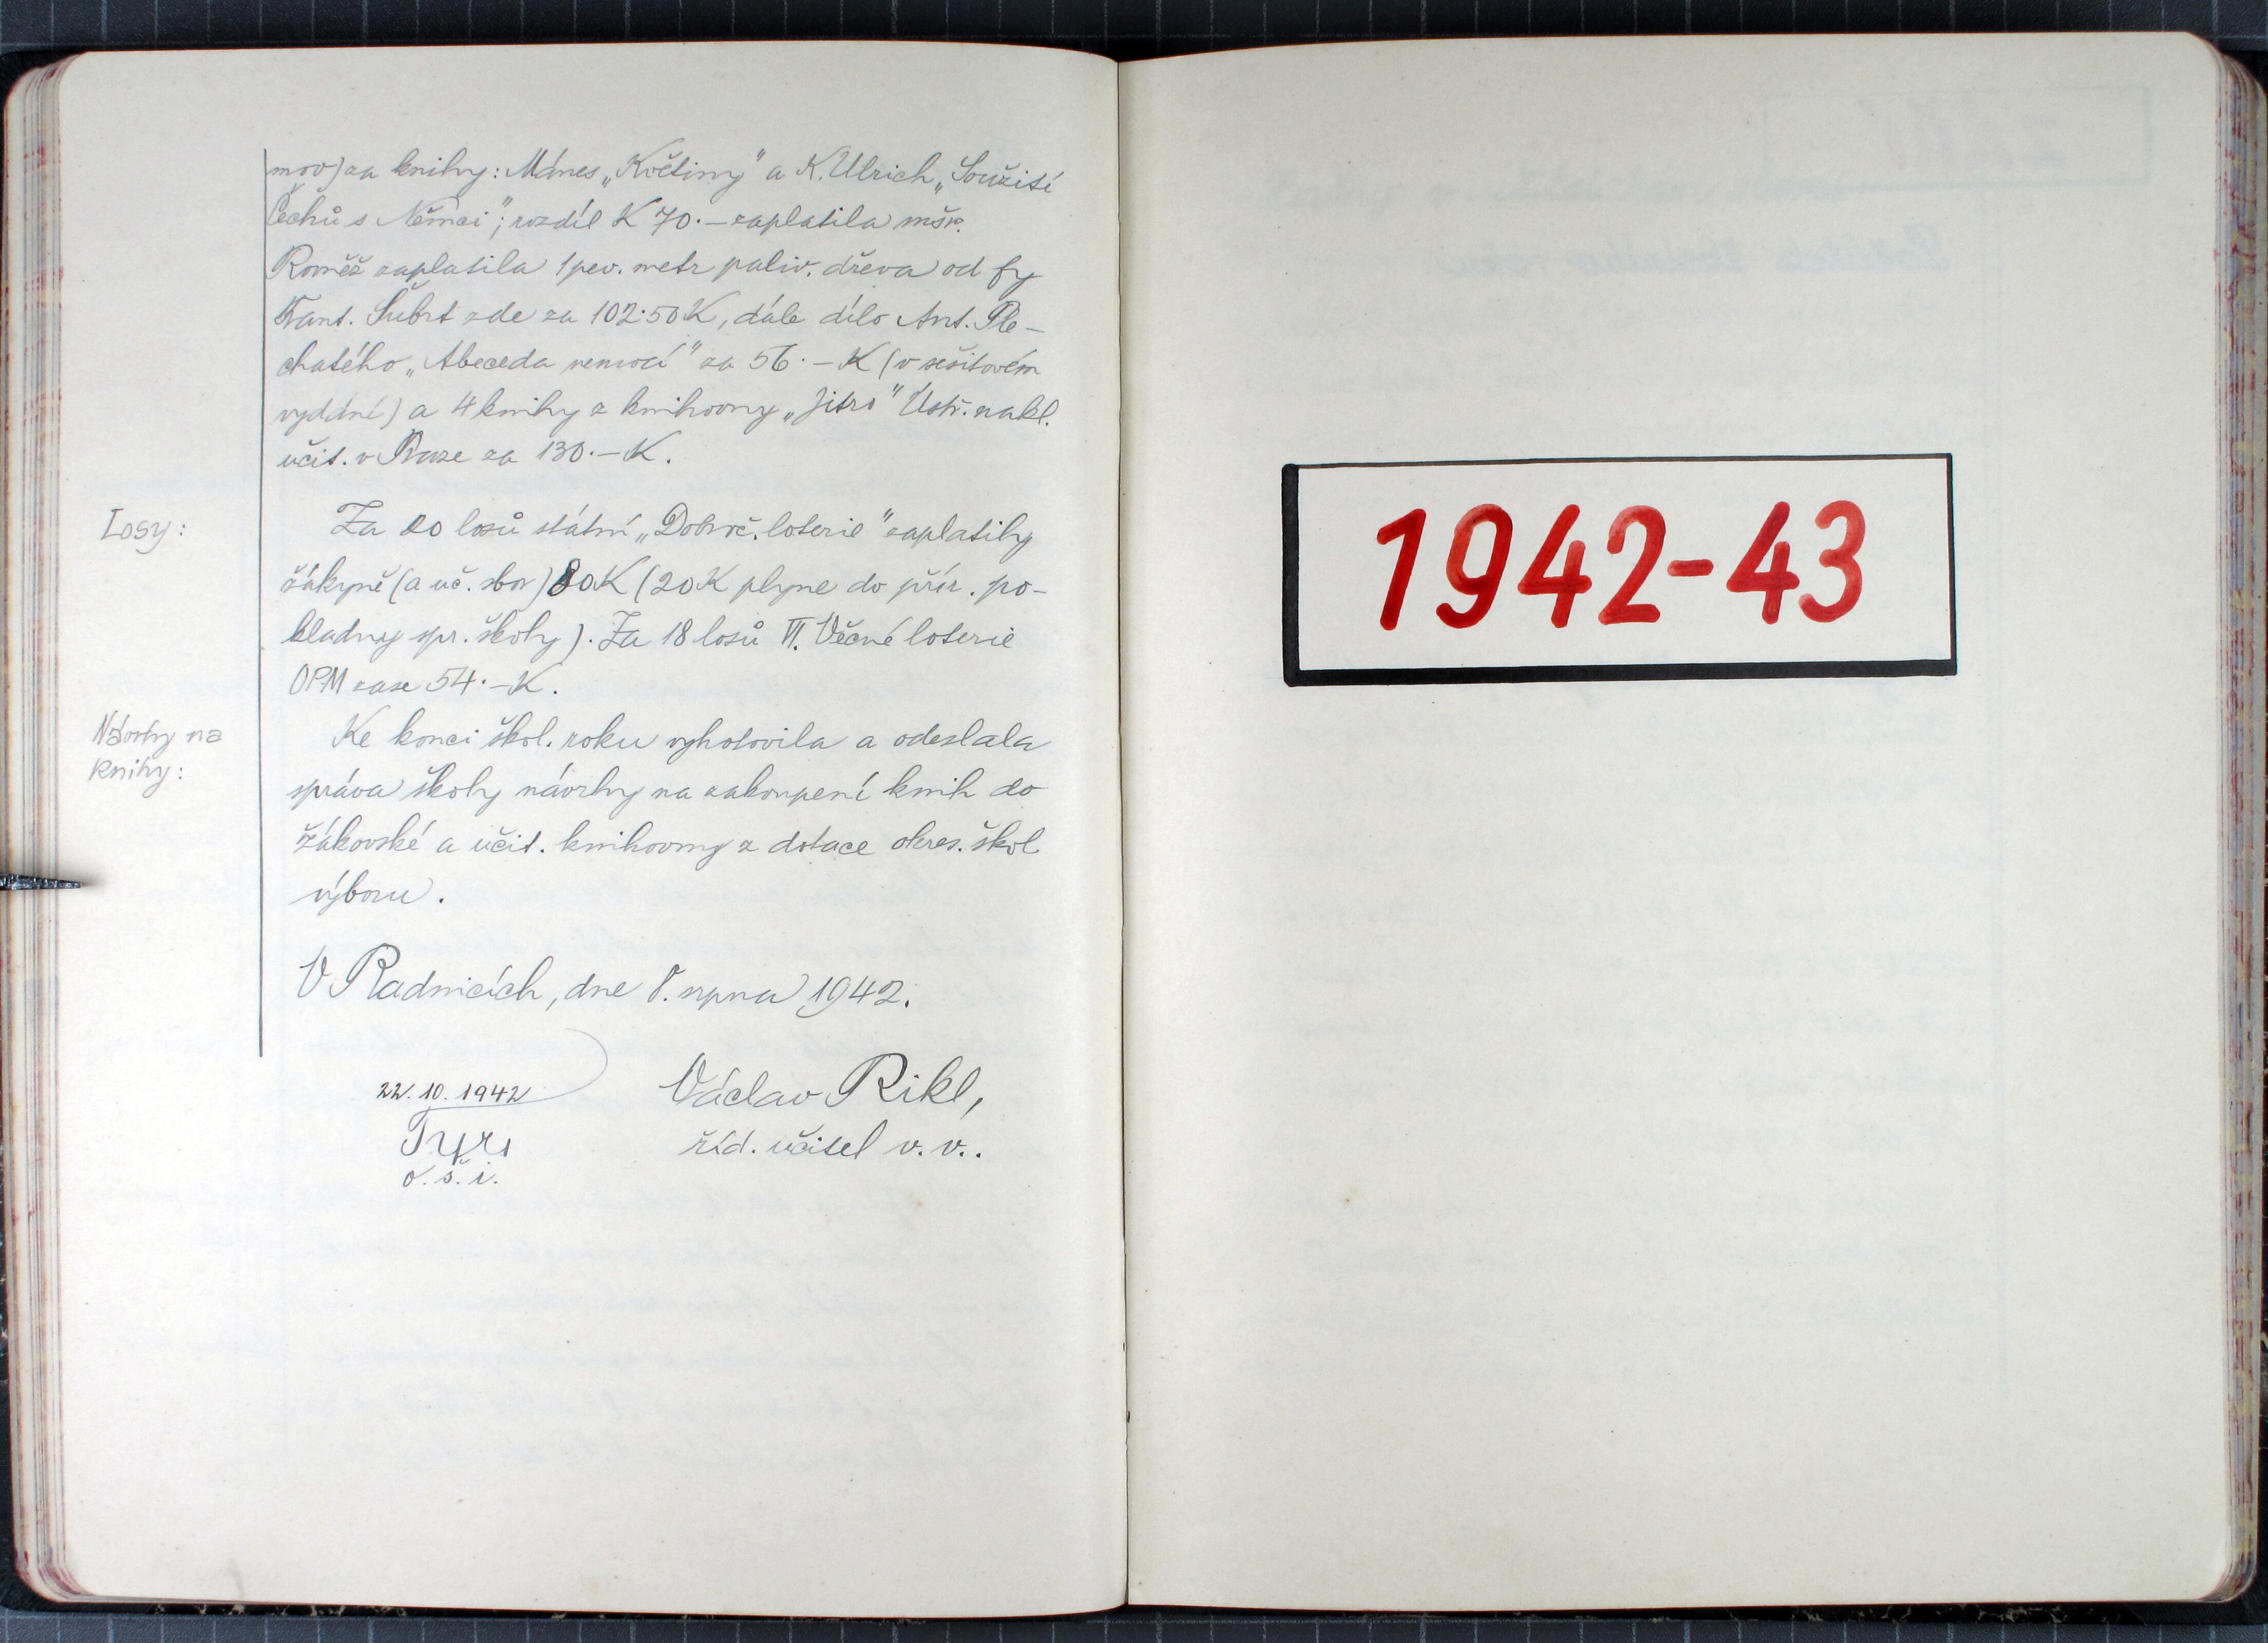 mov) za knihy: Mánes „Květiny" a K. Ulrich „Soužití
Čechů s Němci"; rozdíl K 70.– zaplatila mšr.
Rovněž zaplatila 1 pev. metr paliv. dřeva od fy
Frant. Šubrt zde za 102·50 K, dále dílo Ant. Ple-
chatého „Abeceda nemocí" za 56·– K (v sešitovém
vydání) a 4 knihy z knihovny „Jitro" Ústř. nakl.
učit. v Praze za 130.–K.
Losy:
Za 20 losů státní „Dobroč. loterie" zaplatily
žákyně (a uč. sbor) 80K (20K plyne do přír. po-
kladny spr. školy). Za 18 losů VI. Věcné loterie
OPM zase 54·–K.
Návrhy na
knihy:
Ke konci škol. roku vyhotovila a odeslala
správa školy návrhy na zakoupení knih do
žákovské a učit. knihovny z dotace okres. škol.
výboru.
V Radnicích, dne 8. srpna 1942.
22. 10. 1942
Václav Rikl,
říd. učitel v. v..
o. š. i.
1942-43